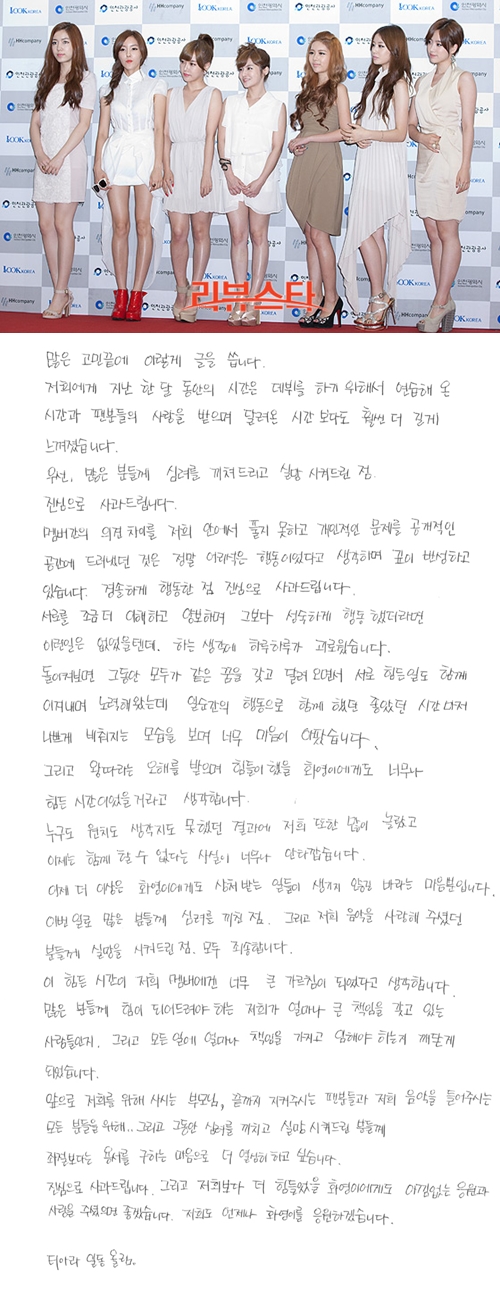 HHcompany
LOOK KOREA
인천관광공사
인천광역시
리뷰스타
많은 고민끝에 이렇게 글을 씁니다.
저희에게 지난 한 달 동안의 시간은 데뷔를 하기 위해서 연습해 온
시간과 팬분들의 사랑을 받으며 달려온 시간 보다도 훨씬 더 길게
느껴졌습니다.
우선, 많은 분들께 심려를 끼쳐드리고 실망 시켜드린 점.
진심으로 사과드립니다.
멤버간의 의견 차이를 저희 안에서 풀지 못하고 개인적인 문제를 공개적인
공간에 드러냈던 것은 정말 어리석은 행동이었다고 생각하며 깊이 반성하고
있습니다. 경솔하게 행동한 점 진심으로 사과드립니다.
서로를 조금 더 이해하고 양보하며 그보다 성숙하게 행동 했더라면
이런일은 없었을텐데. 하는 생각에 하루하루가 괴로웠습니다.
돌이켜보면 그동안 모두가 같은 꿈을 갖고 달려 오면서 서로 힘든일도 함께
이겨내며 노력해왔는데 일순간의 행동으로 함께 했던 좋았던 시간마저
나쁘게 비춰지는 모습을 보며 너무 마음이 아팠습니다.
그리고 왕따라는 오해를 받으며 힘들어했을 화영이에게도 너무나
힘든 시간이었을거라고 생각합니다.
누구도 원치도 생각지도 못했던 결과에 저희 또한 많이 놀랐고
이제는 함께 할 수 없다는 사실이 너무나 안타깝습니다.
이제 더 이상은 화영이에게도 상처 받는 일들이 생기지 않길 바라는 마음뿐입니다.
이번 일로 많은 분들께 심려를 끼친 점. 그리고 저희 음악을 사랑해 주셨던
분들께 실망을 시켜드린 점. 모두 죄송합니다.
이 힘든 시간이 저희 멤버에겐 너무 큰 가르침이 되었다고 생각합니다.
많은 분들께 힘이 되어드려야 하는 저희가 얼마나 큰 책임을 갖고 있는
사람들인지. 그리고 모든 일에 얼마나 책임을 가지고 임해야 하는게 깨닫게
되었습니다.
앞으로 저희를 위해 사시는 부모님, 끝까지 지켜주시는 팬분들과 저희 음악을 들어주시는
모든 분들을 위해.. 그리고 그동안 심려를 끼치고 실망 시켜드린 분들께
좌절보다는 용서를 구하는 마음으로 더 열심히 하고 싶습니다.
진심으로 사과드립니다. 그리고 저희보다 더 힘들었을 화영이에게도 아낌없는 응원과
사랑을 주셨으면 좋겠습니다. 저희도 언제나 화영이를 응원하겠습니다.
티아라 일동 올림..